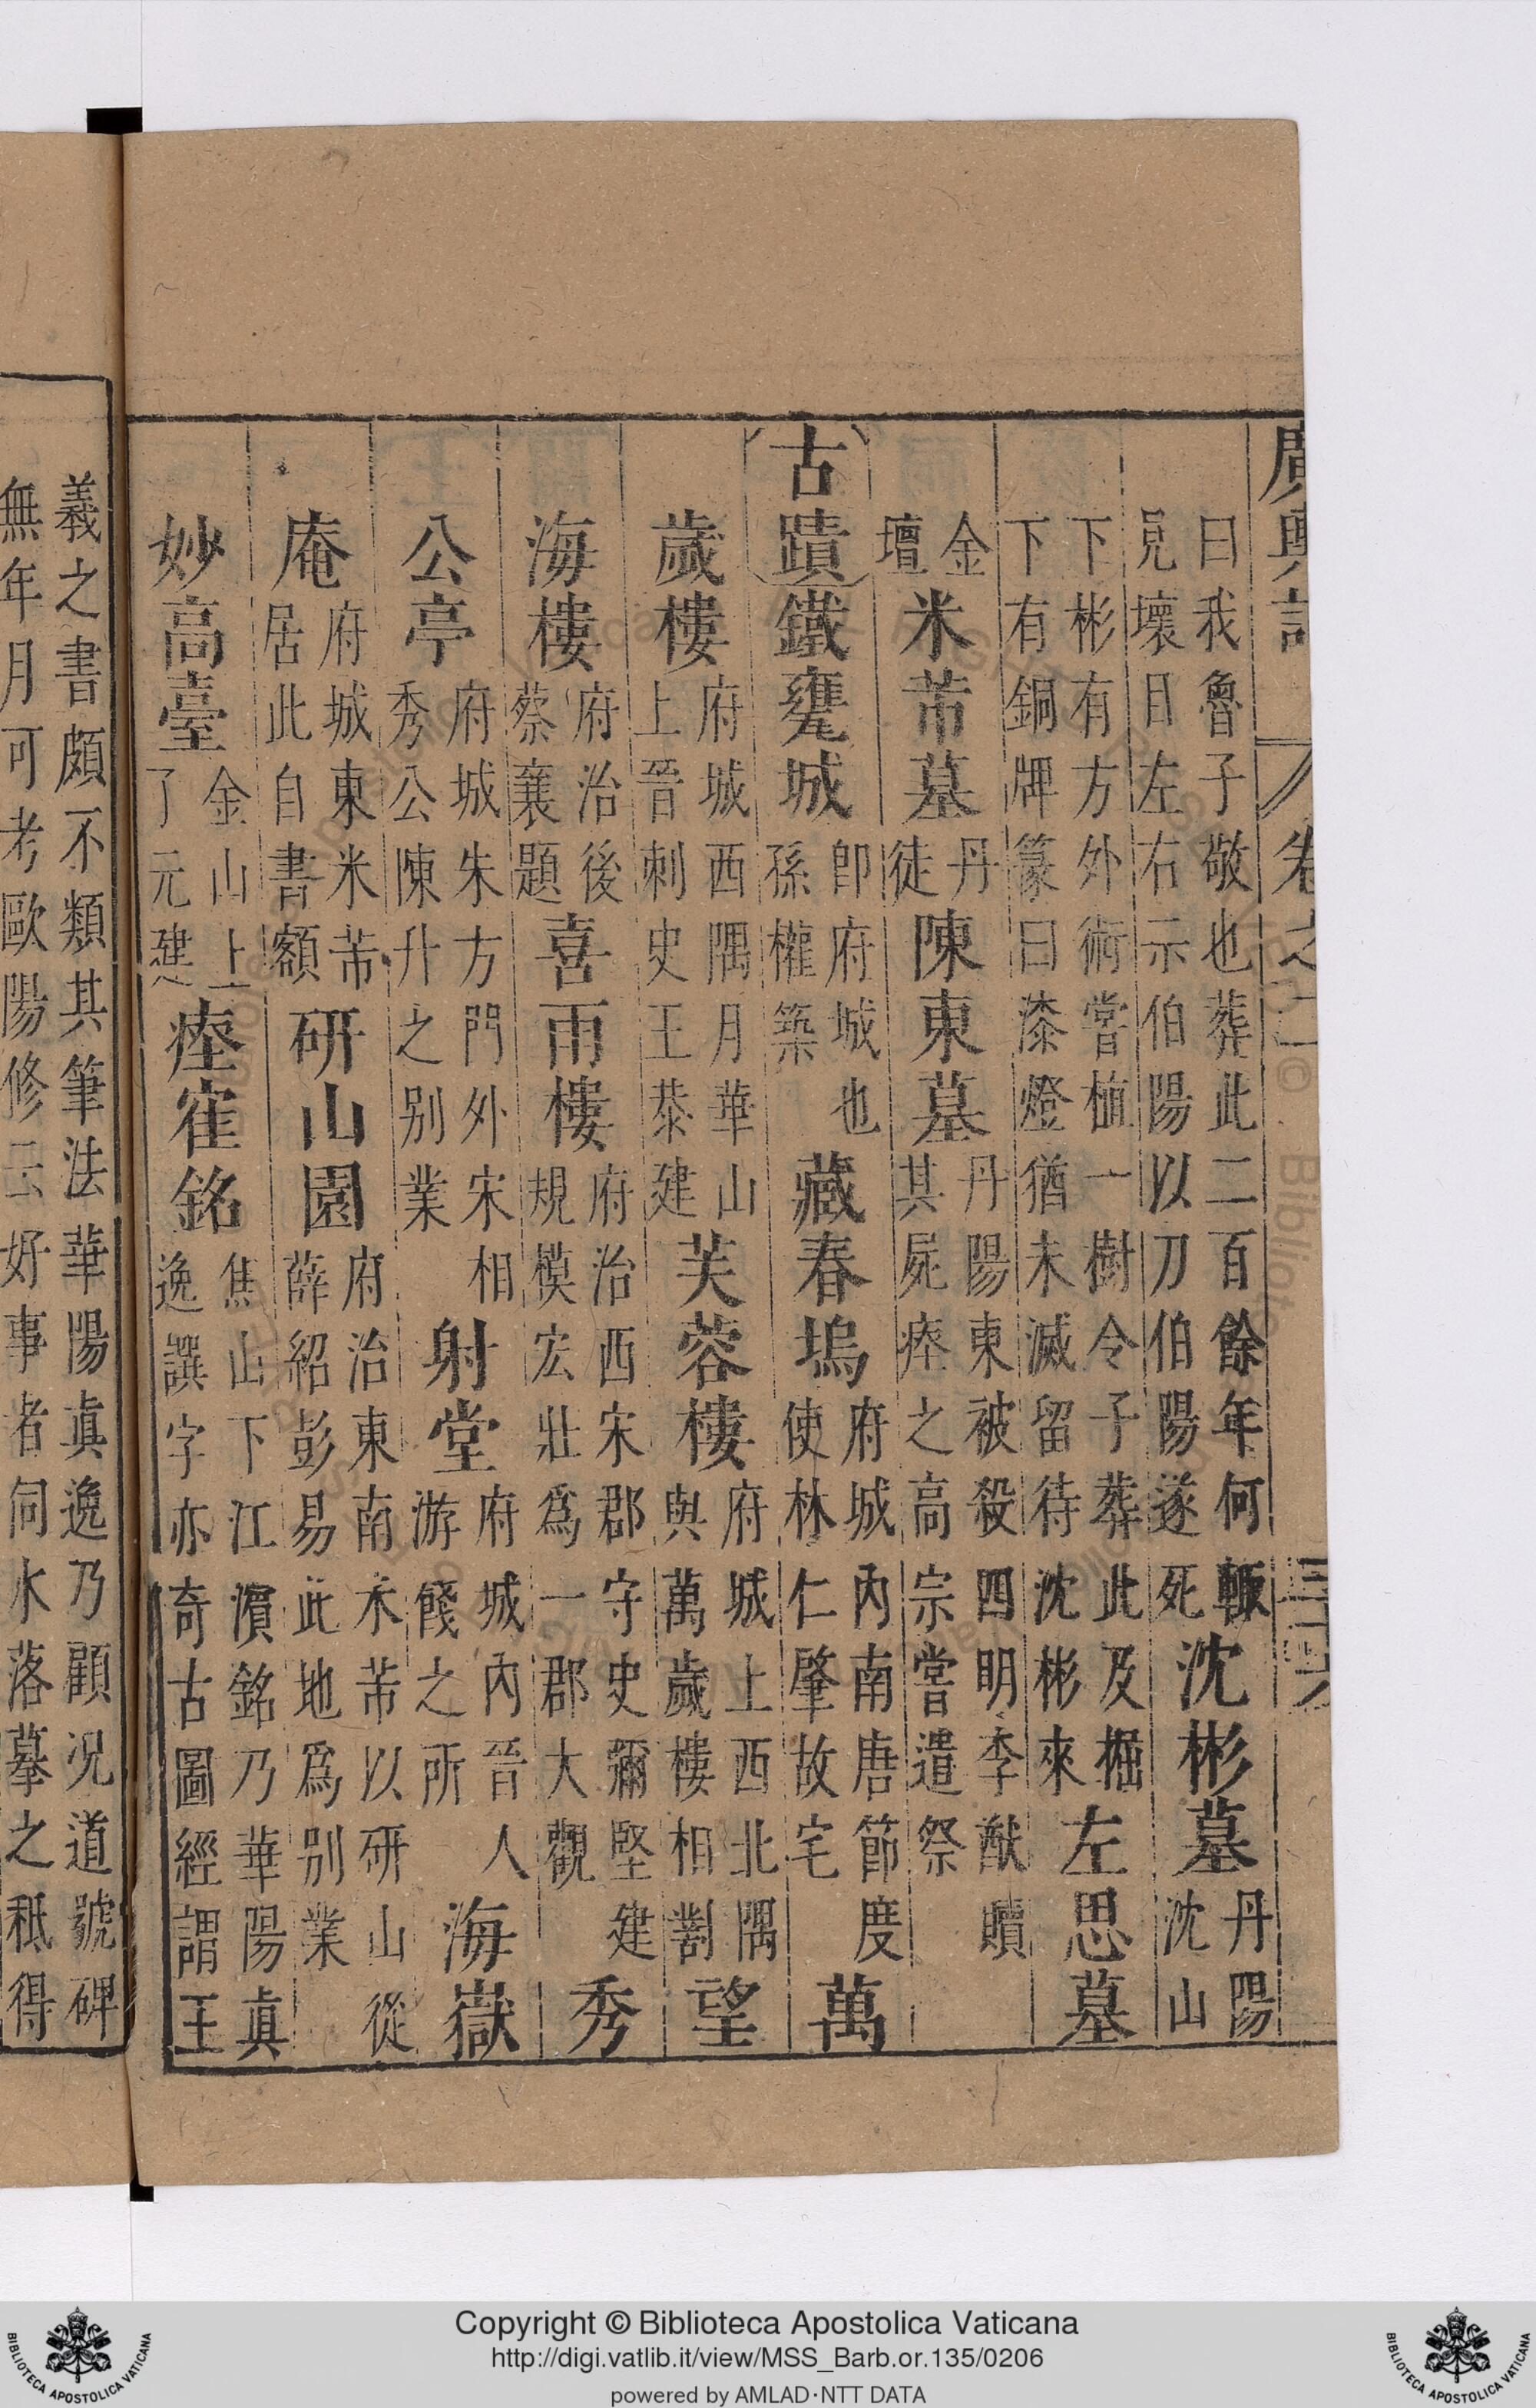 廣輿記 卷之二
曰我魯子敬也葬此二百餘年何輙
見壞目左右示伯陽以刀伯陽遂死
沈彬墓
丹陽
沈山
下彬有方外術嘗植一樹令子葬此及掘
下有銅牌篆曰漆燈猶未滅留待沈彬來
左思墓
金
壇
米芾墓
丹
徒
陳東墓
丹陽東被殺四明李猷贖
其屍瘞之高宗嘗遣祭
古蹟
鐵甕城
卽府城也
孫權築
藏春塢
府城內南唐節度
使林仁肇故宅
萬
歲樓
府城西隅月華山
上晉刺史王恭建
芙蓉樓
府城上西北隅
與萬歲樓相對
望
海樓
府治後
蔡襄題
喜雨樓
府治西宋郡守史彌堅建
規模宏壯爲一郡大觀
秀
公亭
府城朱方門外宋相
秀公陳升之别業
射堂
府城內晉人
游餞之所
海嶽
庵
府城東米芾
居此自書額
研山園
府治東南米芾以研山從
薛紹彭易此地爲别業
妙高臺
金山上
了元建
瘞隺銘
焦山下江濵銘乃華陽眞
逸譔字亦奇古圖經謂王
羲之書頗不類其筆法華陽眞逸乃顧况道號碑
無年月可考歐陽修云好事者伺水落摹之秪得
Copyright © Biblioteca Apostolica Vaticana
http://digi.vatlib.it/view/MSS_Barb.or.135/0206
powered by AMLAD·NTT DATA
BIBLIOTECA APOSTOLICA VATICANA
BIBLIOTECA APOSTOLICA VATICANA